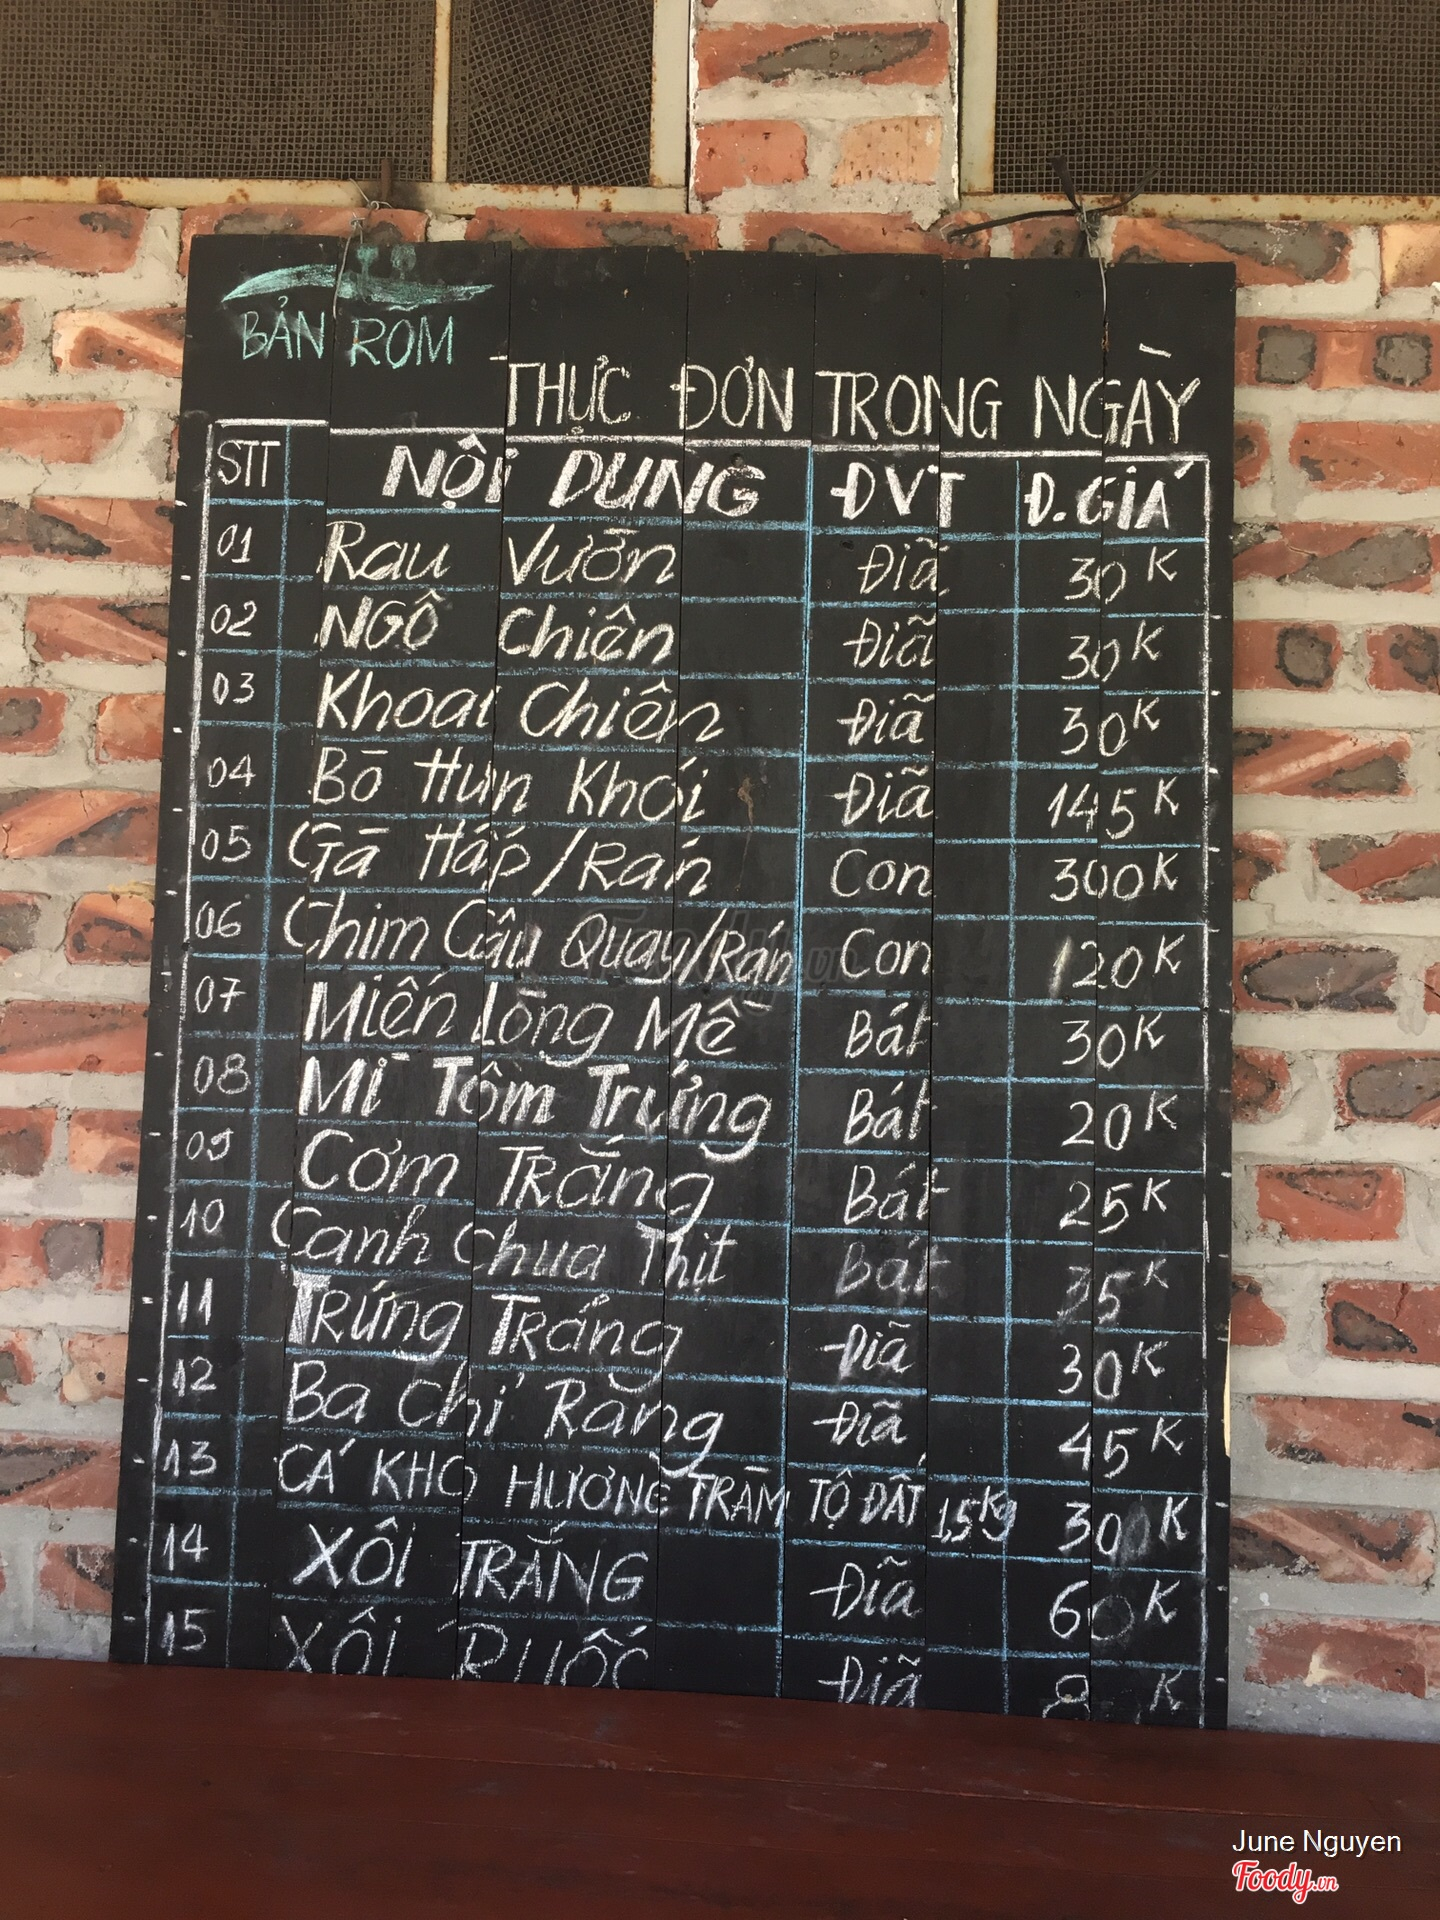 BẢN RÕM
THỰC ĐƠN TRONG NGÀY
STT NỘI DUNG ĐVT Đ.GIÁ
01 Rau Vườn Điã 30K
02 NGÔ Chiên Điã 30K
03 Khoai Chiên Điã 30K
04 Bò Hun Khói Điã 145K
05 Gà Hấp/Rán Con 300K
06 Chim Câu Quay/Rán Con 120K
07 Miến Lòng Mề Bát 30K
08 Mì Tôm Trứng Bát 20K
09 Cơm Trắng Bát 25K
10 Canh Chua Thịt Bát 35K
11 Trứng Tráng Điã 30K
12 Ba Chỉ Rang Điã 45K
13 CÁ KHO HƯƠNG TRÀM TỘ ĐẤT 1,5Kg 300K
14 XÔI TRẮNG Điã 60K
15 XÔI RUỐC Điã
Foody.vn
June Nguyen
Foody.vn